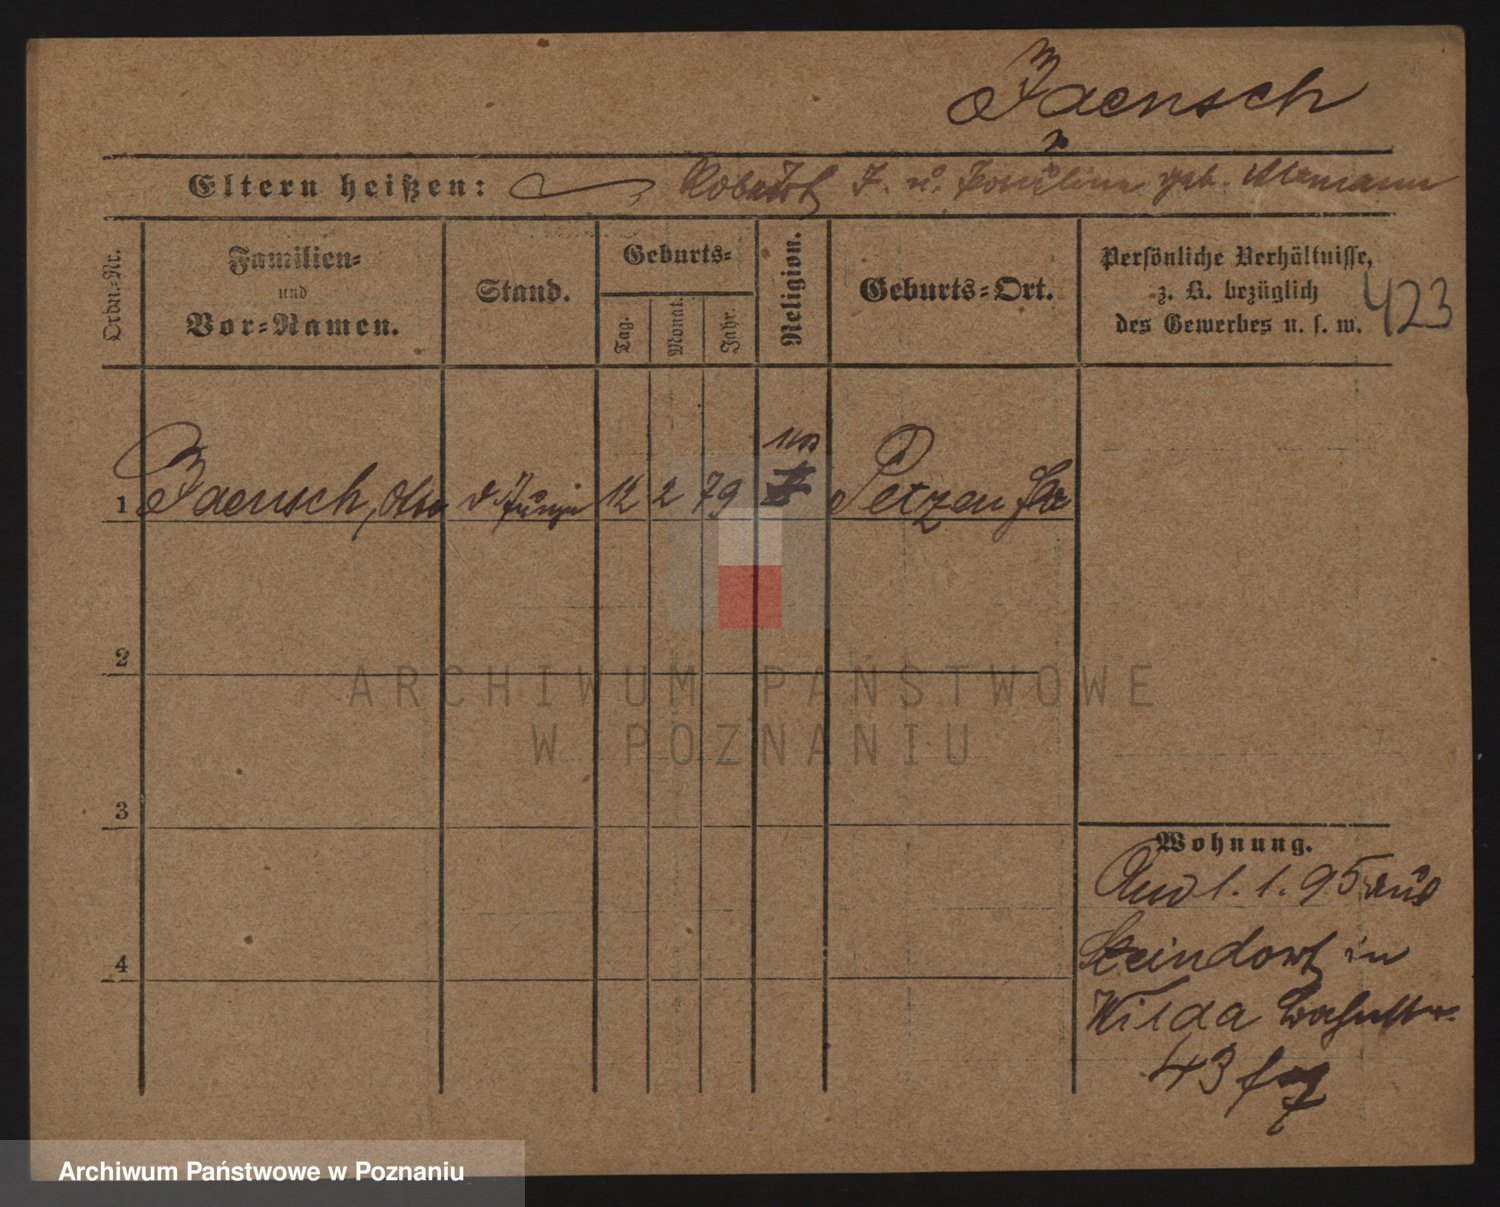 Jaensch
Eltern heißen: Robert J. u. Pauline geb.
Ordn.-Nr.
Familien-
und
Vor-Namen.
Stand.
Geburts-
Tag.
Monat.
Jahr.
Religion.
Geburts-Ort.
Persönliche Verhältnisse,
z. B. bezüglich
des Gewerbes u. s. w.
423
1 Jaensch, Otto 12 2 79 Petzen
2
3
4
Wohnung.
1. 1. 95 aus
Steindorf in
Wilda
43
ARCHIWUM PAŃSTWOWE
W POZNANIU
Archiwum Państwowe w Poznaniu